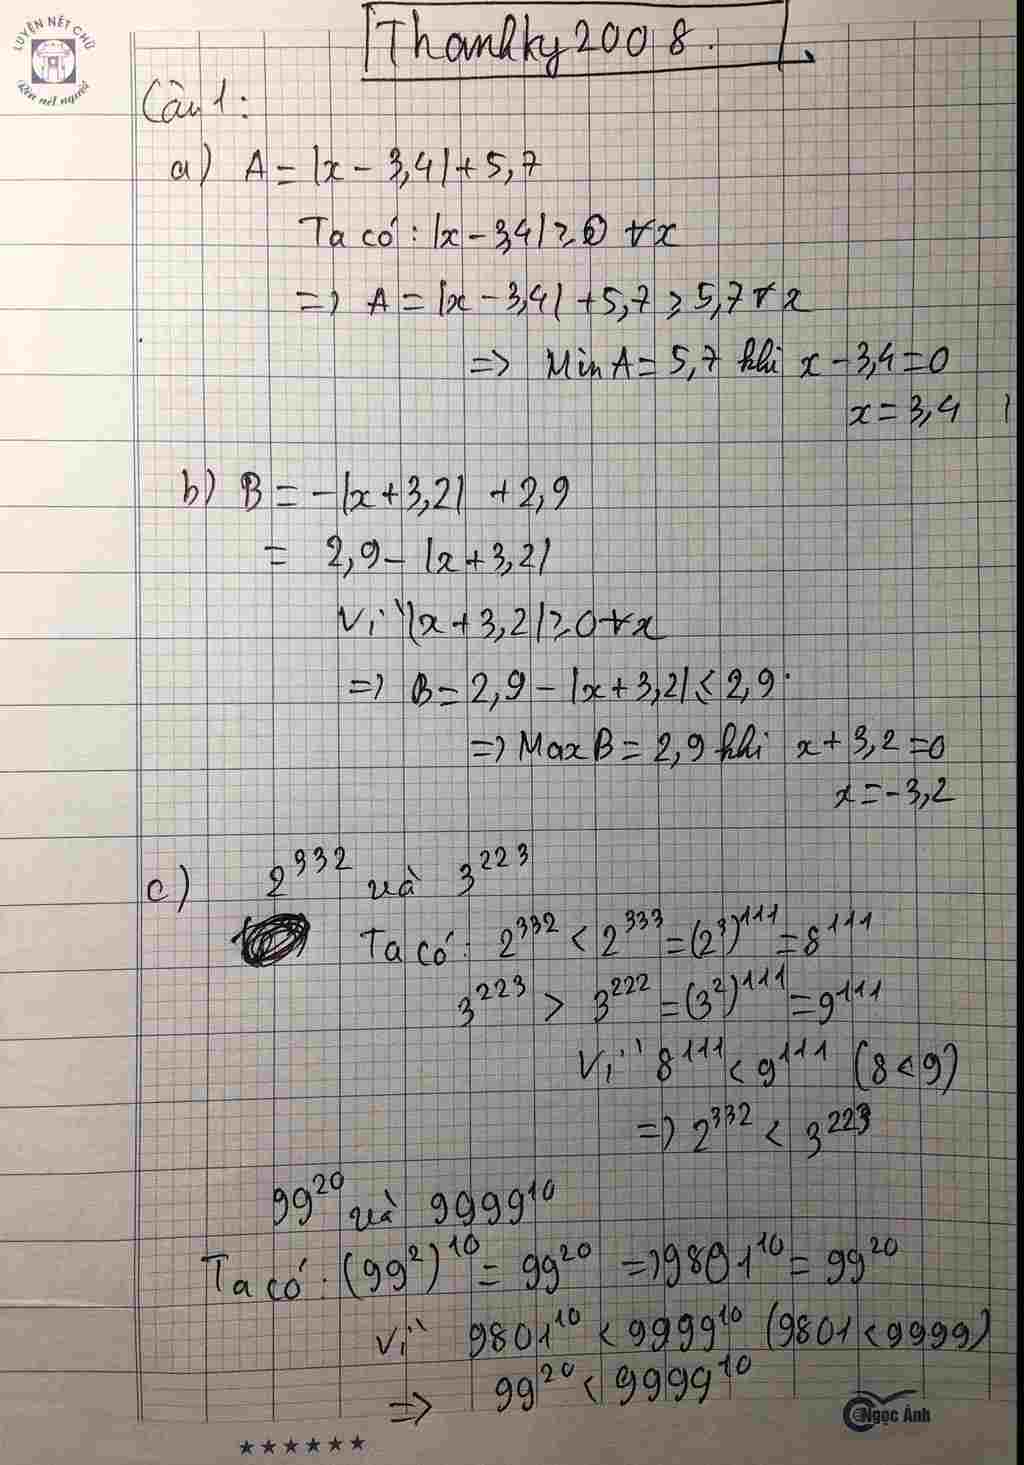 LUYỆN NẾT CHỮ
Rèn nết người
Thanhky2008.
Câu 1:
a) A = |x - 3,4| + 5,7
Ta có: |x - 3,4| ≥ 0 ∀x
=> A = |x - 3,4| + 5,7 ≥ 5,7 ∀x
=> Min A = 5,7 khi x - 3,4 = 0
x = 3,4
b) B = -|x + 3,2| + 2,9
= 2,9 - |x + 3,2|
Vì |x + 3,2| ≥ 0 ∀x
=> B = 2,9 - |x + 3,2| ≤ 2,9
=> Max B = 2,9 khi x + 3,2 = 0
x = -3,2
c) 2³³² và 3²²³
Ta có: 2³³² < 2³³³ = (2³)¹¹¹ = 8¹¹¹
3²²³ > 3²²² = (3²)¹¹¹ = 9¹¹¹
Vì 8¹¹¹ < 9¹¹¹ (8 < 9)
=> 2³³² < 3²²³
99²⁰ và 9999¹⁰
Ta có: (99²)¹⁰ = 99²⁰ => 9801¹⁰ = 99²⁰
Vì 9801¹⁰ < 9999¹⁰ (9801 < 9999)
=> 99²⁰ < 9999¹⁰
Ngọc Ánh